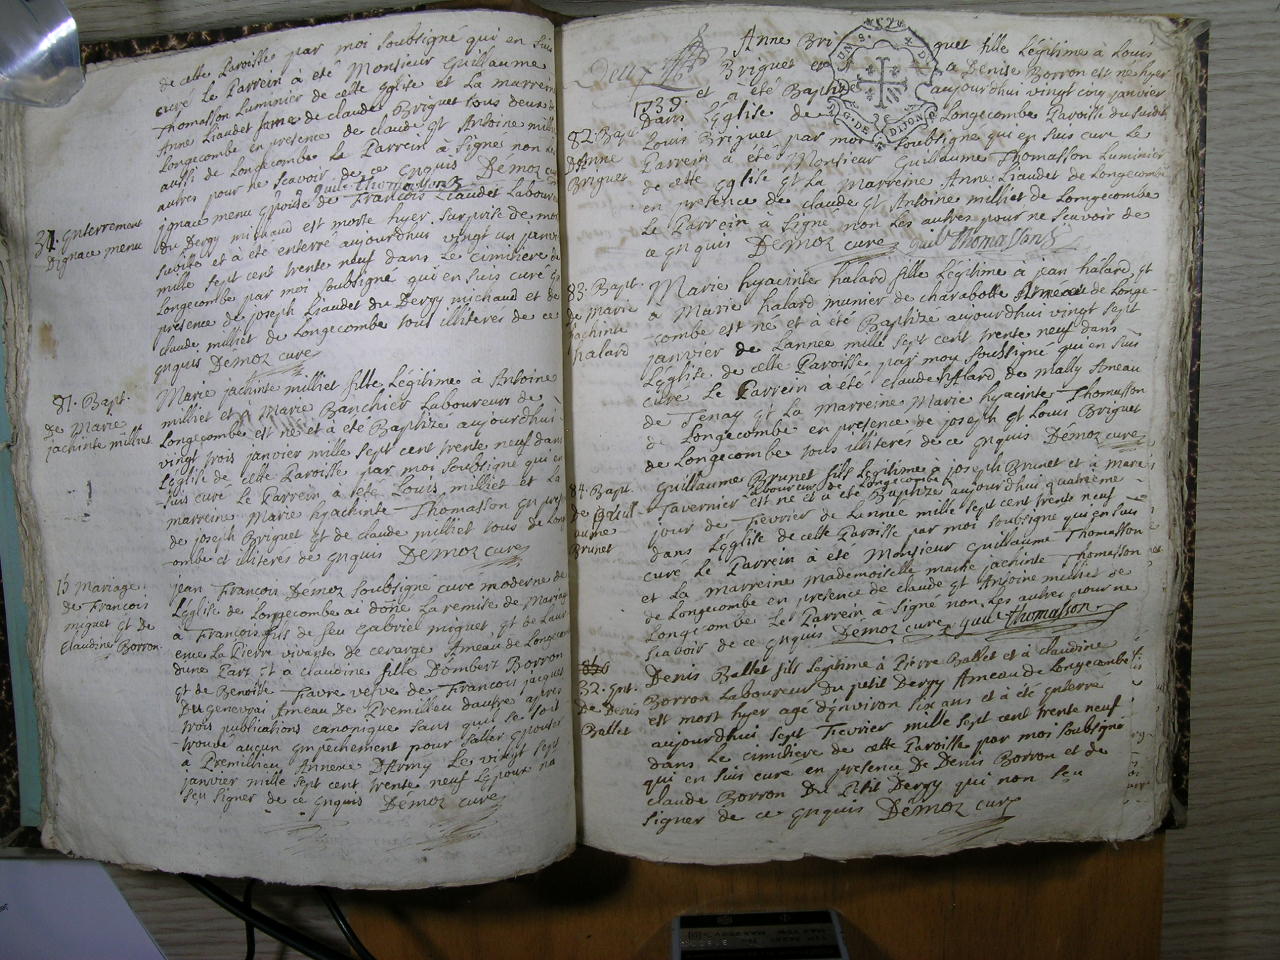 de cette Paroisse par moi soubsigné qui en suis
curé Le Parrein a été Monsieur Guillaume
Thomasson Luminier de cette Eglise et La marreine
Anne Liaudet famme de claude Briguet tous deux de
Longecombe en presence de claude Et Antoine milliet
aussi de Longecombe Le Parrein a Signes non Les
autres pour ne Scavoir de ce Enquis Démoz curé
guil Thomasson
ignace menu de François Liaudet Laboureur
du Dergy michaud est morte hyer surprise de mort
subite et a été enterré aujourdhus vingt un janvier
mille sept cent trente neuf dans Le cimitiere de
Longecombe par moi soubsigné qui en suis curé En
presence de joseph Liaudet du Dergy michaud et de
claude milliet de Longecombe tous illiteres de ce
Enquis Démoz curé
31. Enterrement
D'ignace menu
Marie jachinte milliet fille Légitime à Antoine
milliet et a Marie Banchier Laboureurs de
Longecombe est ne et a été Baptize aujourdhui
vingt trois janvier mille sept cent trente neuf dans
Léglise de cette Paroisse par moi soubsigné qui en
suis curé Le Parrein a été Louis milliet et La
marreine Marie hyachinte Thomasson En presence
de joseph Briguet Et de claude milliet tous de Longec
ombe et illiteres de Enquis Démoz curé
81. Bapt.
De Marie
jachinte milliet
jean François Démoz soubsigné curé moderne de
Léglise de Longecombe ai doné La remise de Mariage
à François fils de feu gabriel miguet Et de Laur
ence La Pierre vivante de cerarge Ameau de Longecombe
dune Part Et à claudine fille Dombert Borron
Et de Benoite Favre veuve de François jacquet
Du genevrai Ameau De Premillieu dautre apres
trois publications canonique sans quil se soit
trouvé aucun Empechement pour saller Epouser
a Premillieu Annexe DArmy Le vingt sept
janvier mille sept cent trente neuf Lepoux na
seu signer de ce Enquis Démoz curé
15 Mariage
de François
miguet Et de
Claudine Borron
Deux
1739.
Anne Briguet fille Légitime à Louis
Briguet et a Denise Borron est ne hyer
et a été Baptize aujourdhui vingt cinq janvier
Dans Léglise de Longecombe Paroisse du susdit
Louis Briguet par moi soubsigne qui en suis cure Le
Parrein à été Monsieur Guillaume Thomasson Luminier
de cette Eglise Et La Marreine Anne Liaudet de Longecombe
en presence de claude Et Antoine milliet de Longecombe
Le Parrein à Signe non Les autres pour ne Scavoir de
ce Enquis Démoz curé guil Thomasson
G. DE DIJON
82. Bapt
D'Anne
Briguet
Marie hyacinte halard fille Légitime à jean halard Et
a Marie halard munier de charabotte Ameau de Longe-
combe est ne et à été Baptize aujourdhui vingt sept
janvier de Lannee mille sept cent trente neuf dans
Léglise de cette Paroisse par moy soubsigné qui en suis
curé Le Parrein a été claude halard de mally Ameau
de Tenay Et La marreine Marie hyacinte Thomasson
de Longecombe en presence de joseph Et Louis Briguet
de Longecombe tous illiteres de ce Enquis Démoz curé
83. Bapt.
de Marie
jachinte
halard
Guillaume Brunet fils Légitime à joseph Brunet et à Marie
Laboureur de Longecombe
Tavernier est ne et a été Baptize aujourdhui quatrième
jour de Fievrier de Lannee mille sept cent trente neuf
dans Léglise de cette Paroisse par moi soubsigné qui en suis
curé Le Parrein à été Monsieur Guillaume Thomasson
et La Marreine mademoiselle marie jachinte Thomasson
de Longecombe en presence de claude Et Antoine milliet de
Longecombe Le Parrein à Signe non Les autres pour ne
Scavoir de ce Enquis Démoz curé guil Thomasson
84. Bapt.
de Guill
aume
Brunet
Denis Ballet fils Légitime à Pierre Ballet et à claudine
Borron Laboureur du petit Dergy Ameau de Longecombe
est mort hyer agé d'Environ six ans et a été Enterre
aujourdhui sept Fievrier mille sept cent trente neuf
dans Le cimitiere de cette Paroisse par moi soubsigné
qui en suis curé en presence de Denis Borron et de
claude Borron Du Petit Dergy qui non seu
signer de ce Enquis Démoz curé
32. Ent.
De Denis
Ballet